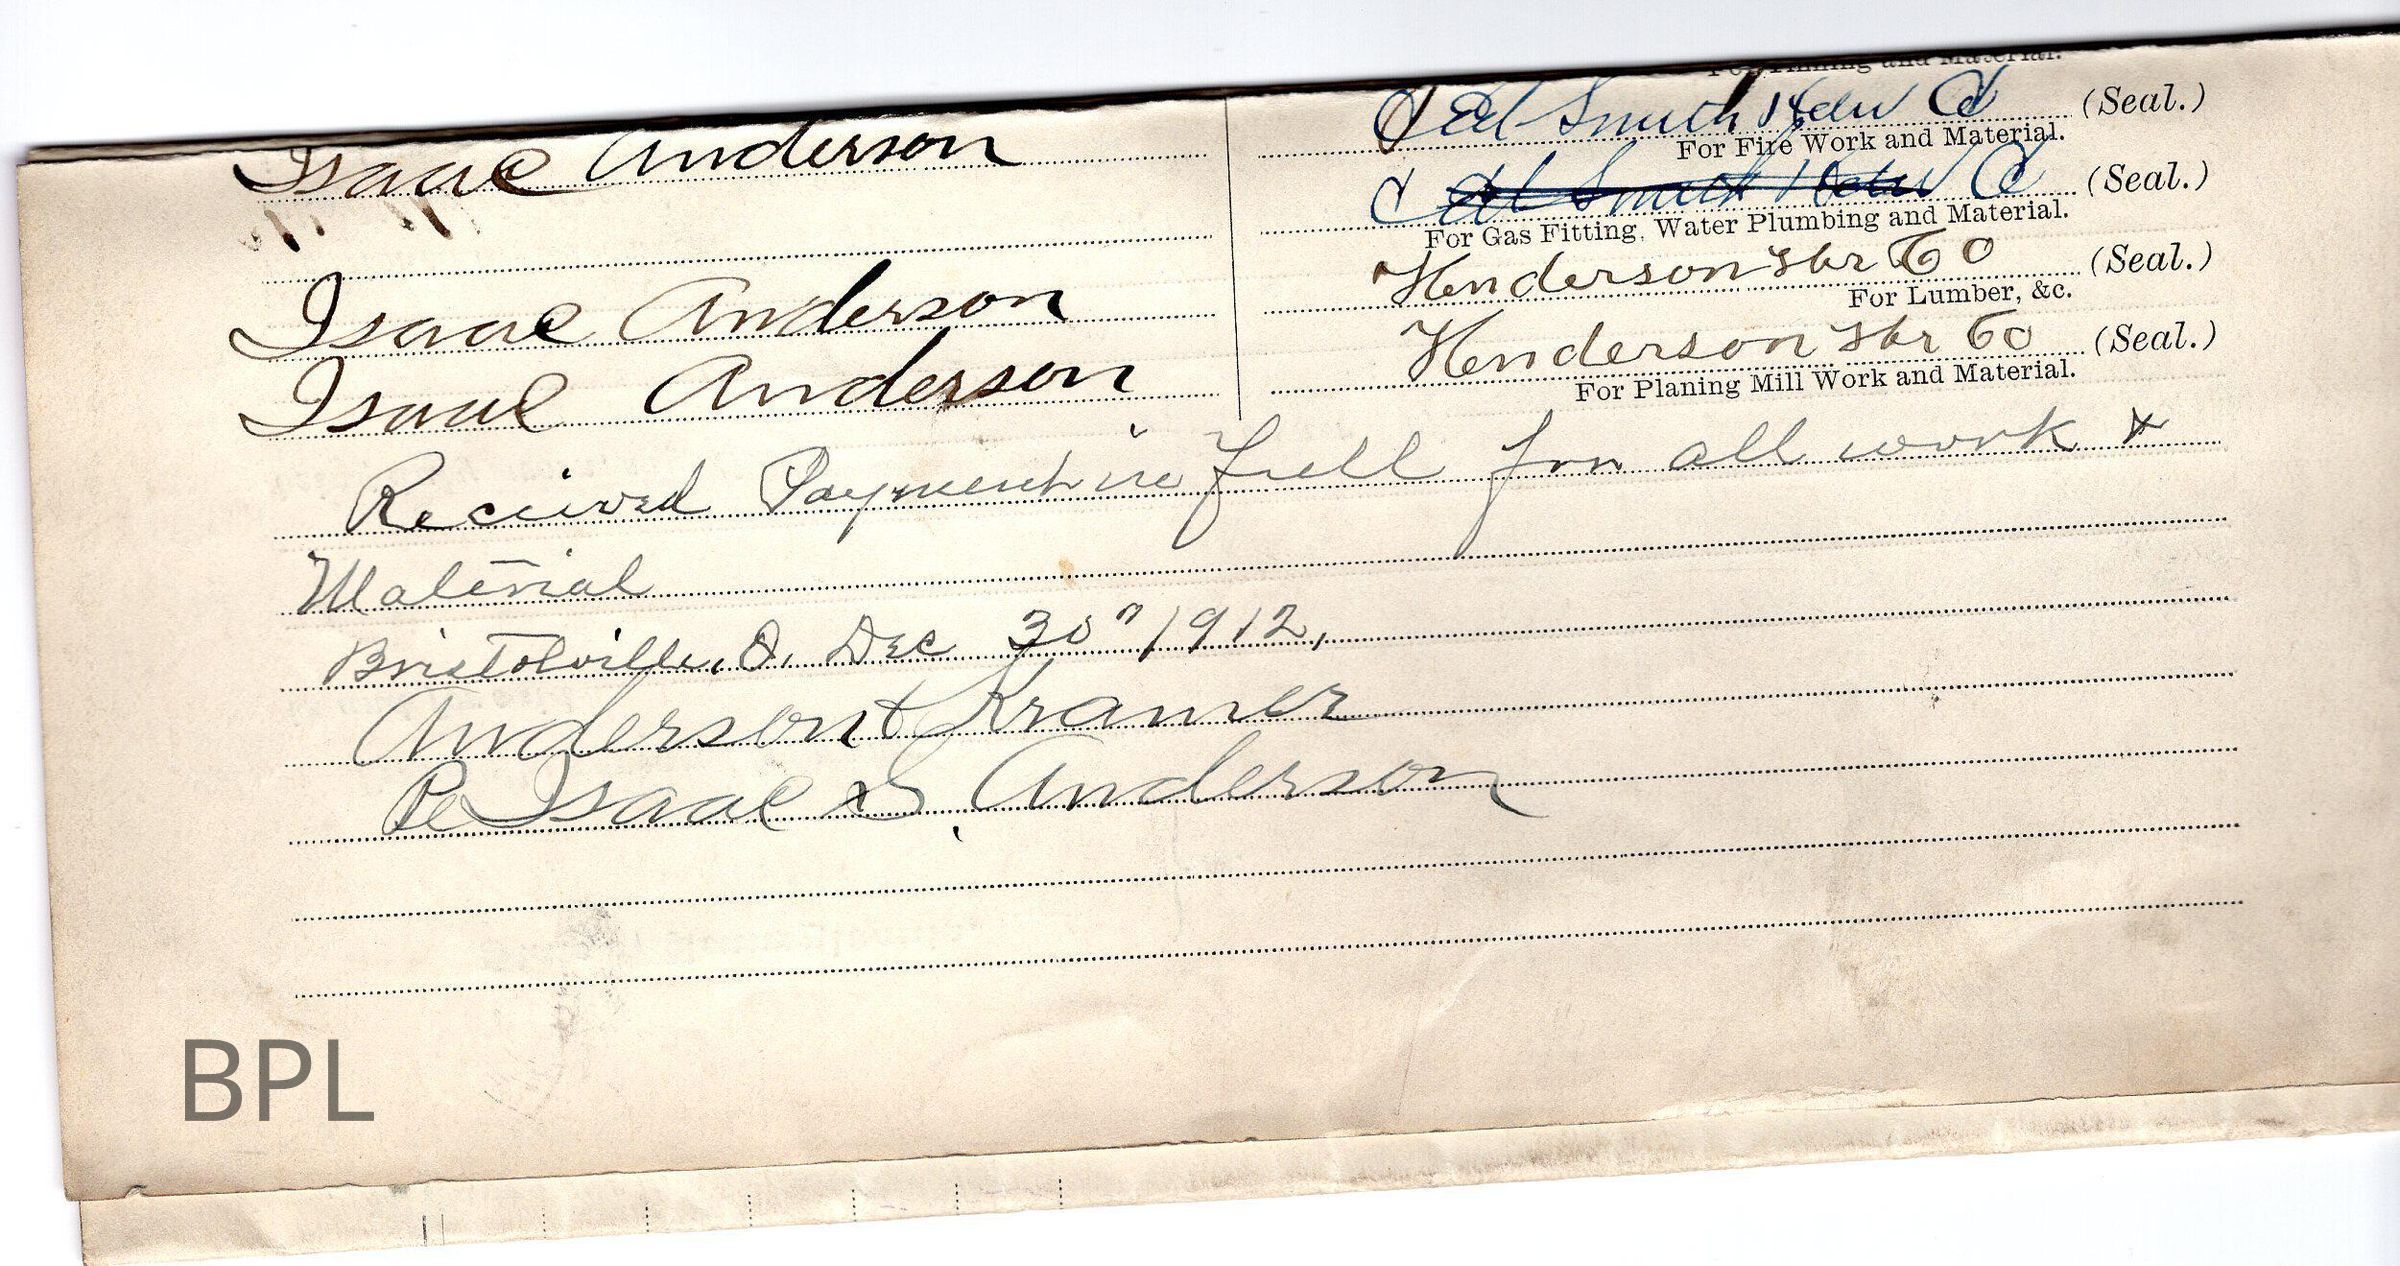 For Tinning and Material.
Isaac Anderson
Ed Smith Hdw Co (Seal.)
For Fire Work and Material.
Ed Smith Hdw Co (Seal.)
For Gas Fitting, Water Plumbing and Material.
Isaac Anderson
Henderson Lbr Co (Seal.)
For Lumber, &c.
Isaac Anderson
Henderson Lbr Co (Seal.)
For Planing Mill Work and Material.
Recieved Payment in full for all work &
Material
Bristolville, O. Dec 30" 1912,
Anderson & Kramer
Pe Isaac S. Anderson
BPL